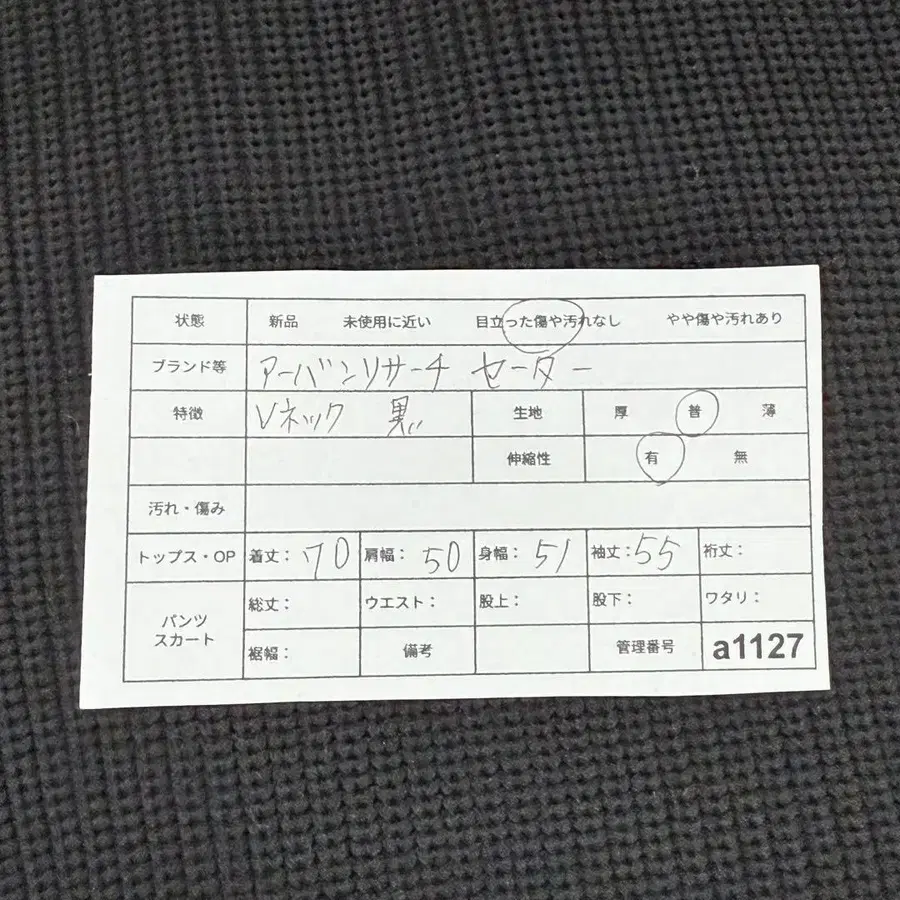 状態 新品 未使用に近い 目立った傷や汚れなし やや傷や汚れあり
ブランド等 アーバンリサーチ セーター
特徴 Vネック 黒 生地 厚 普 薄
伸縮性 有 無
汚れ・傷み
トップス・OP 着丈: 70 肩幅: 50 身幅: 51 袖丈: 55 裄丈:
パンツ スカート 総丈: ウエスト: 股上: 股下: ワタリ:
裾幅: 備考 管理番号 a1127